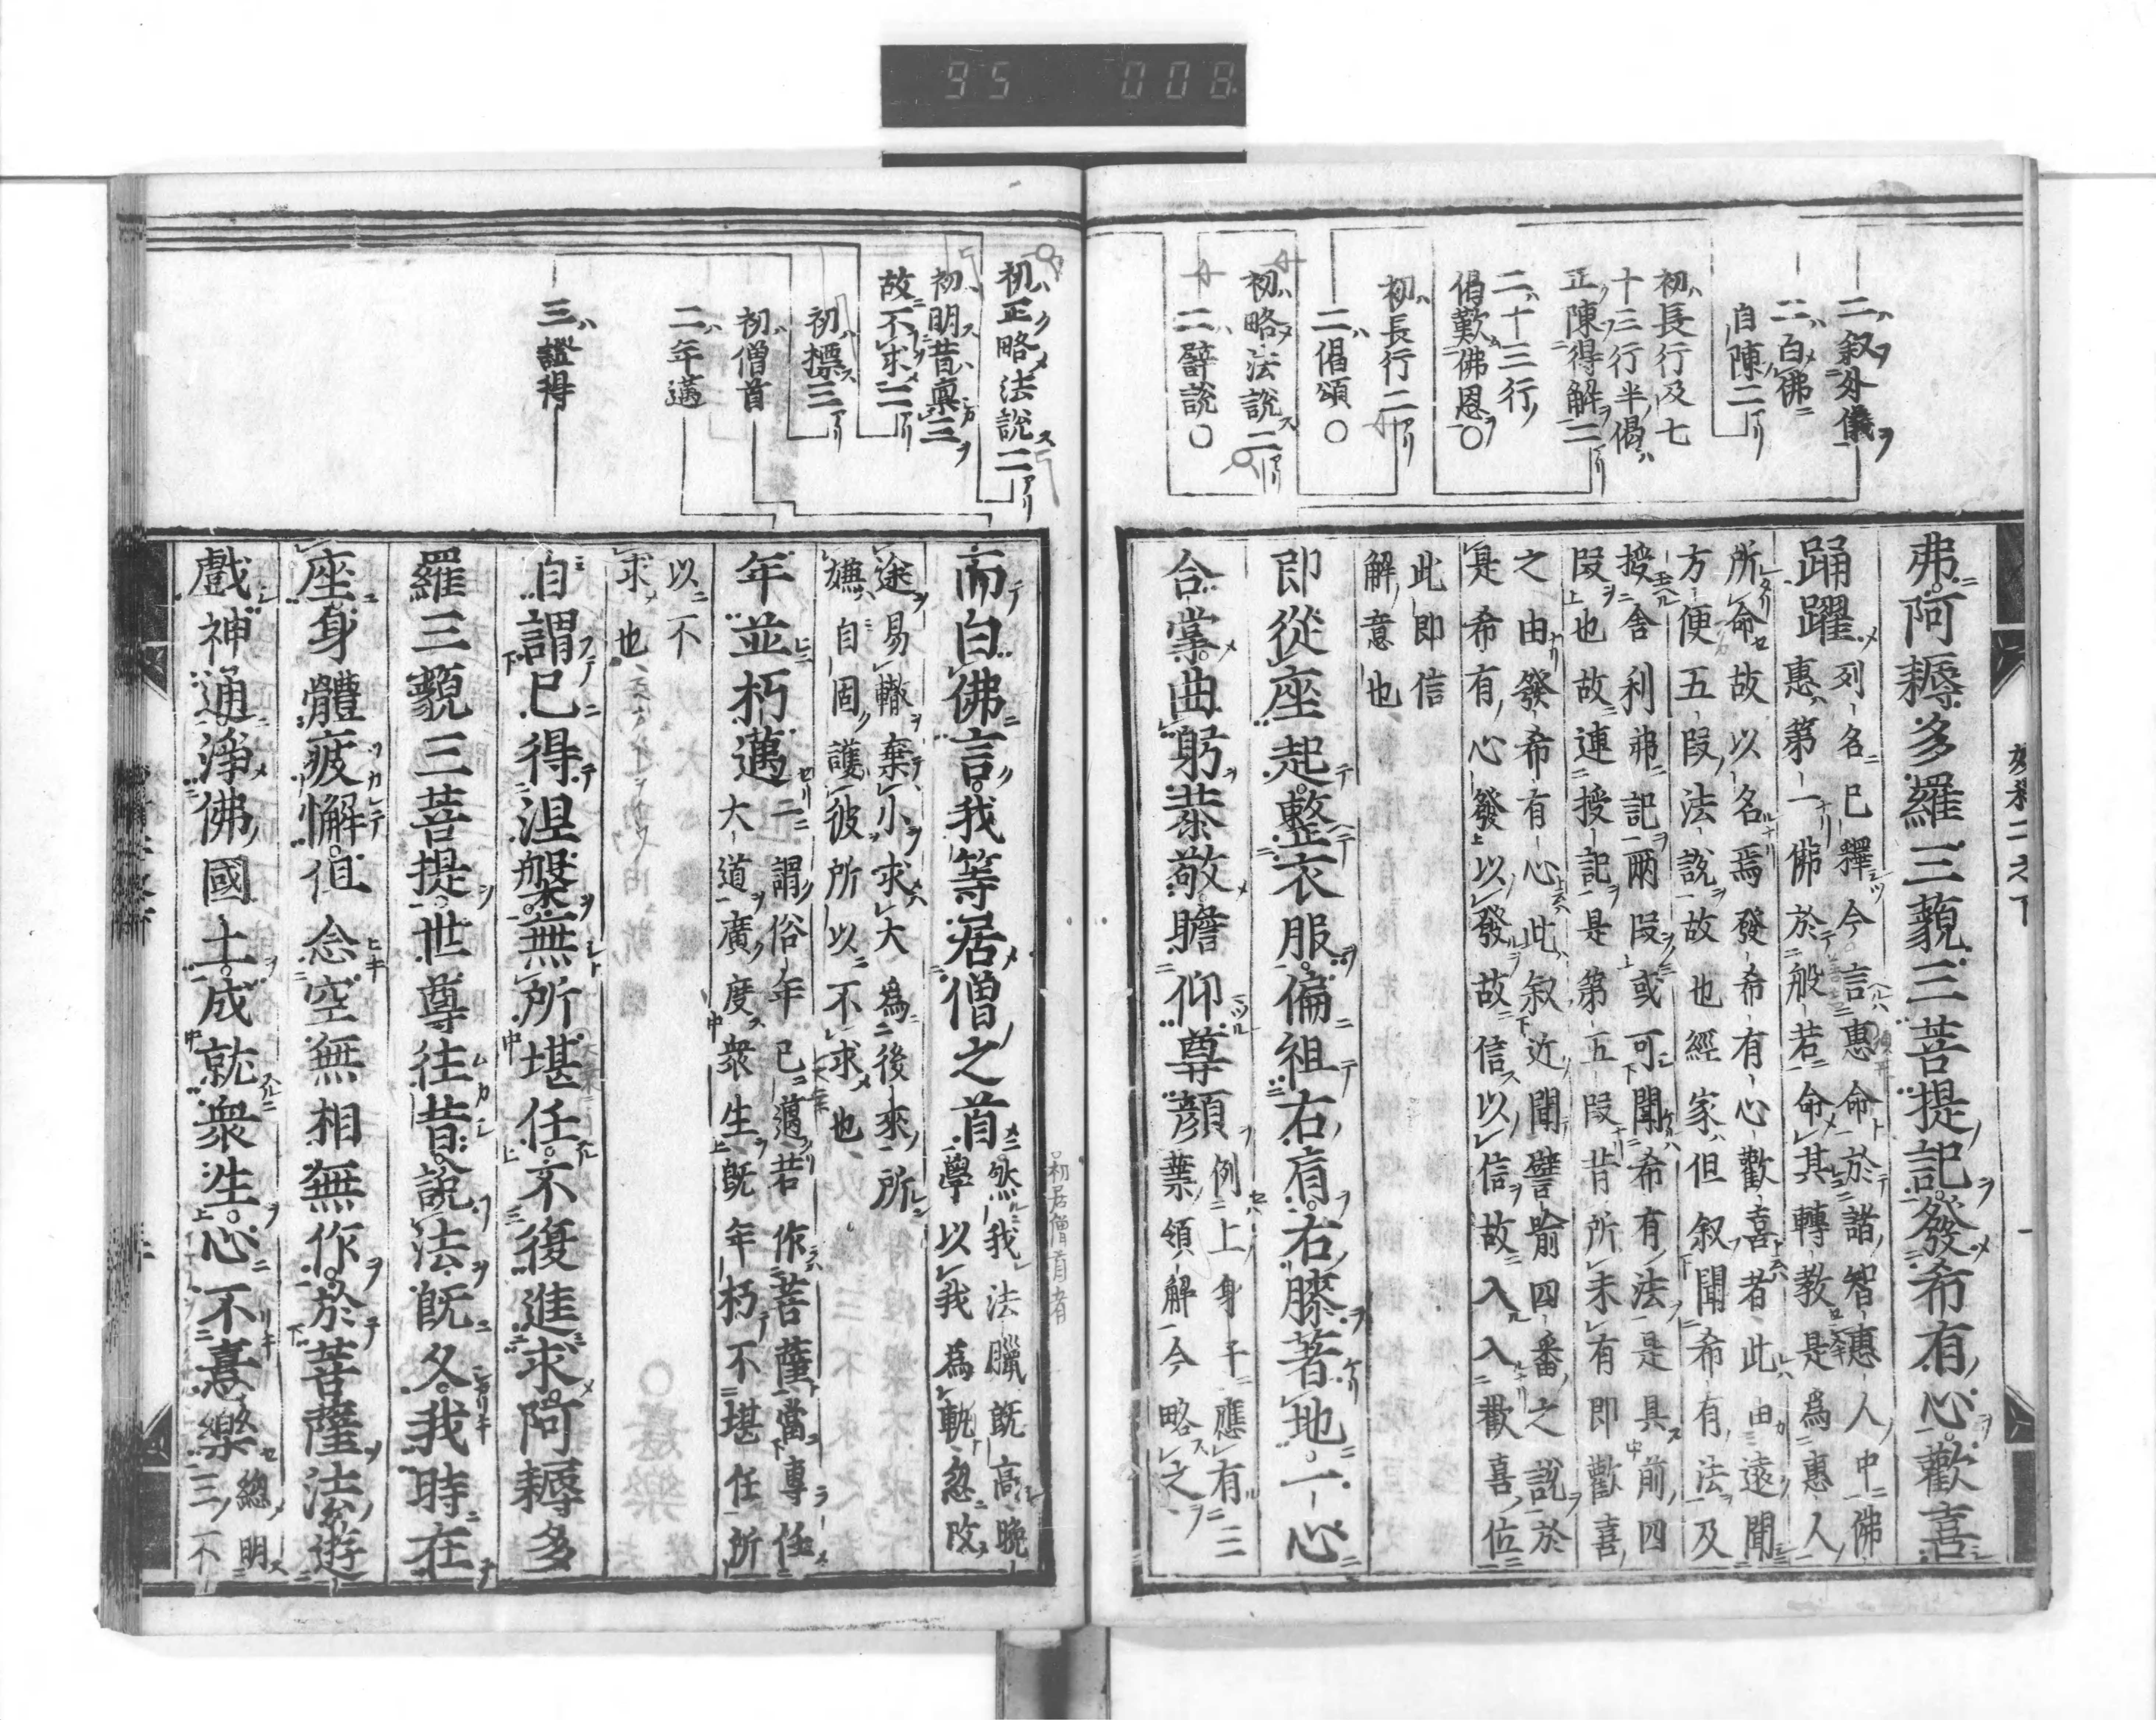 95 008
二叙外儀
二百佛
自陳二
初長行及七
十三行半偈
正陳得解二
二十三行
偈歎佛恩〇
初長行二
二偈頌〇
初略法說二
二譬說〇
弗阿耨多羅三藐三菩提記發希有心歡喜
踊躍
列名巳釋今言惠命於諸智惠人中佛
惠第一佛於般若命其轉教是為惠人
所命故以名焉發希有心歡喜者此由遠聞
方便五段法說故也經家但叙聞希有法及
授舍利弗記兩段或可聞希有法是具前四
段也故連授記是第五段昔所未有即歡喜
之由發希有心此叙近聞譬喻四番之說於
是希有心發以發故信以信故入入歡喜位
此即信
解意也
即從座起整衣服偏袒右肩右膝著地一心
合掌曲躬恭敬瞻仰尊顏
例上身子應有三
業領解今略之
初正略法說二
初明昔稟三
故不求二
初標三
初僧首
二年邁
三證得
而白佛言我等居僧之首
然我法臘既高晚
學以我為軌忽改
途易轍棄小求大為後來所
嫌自固護彼所以不求也
年並朽邁
二謂俗年巳邁若作菩薩當專任
大道廣度衆生既年朽不堪任所
以不
求也
自謂巳得涅槃無所堪任不復進求阿耨多
羅三藐三菩提世尊往昔說法既久我時在
座身體疲懈但念空無相無作於菩薩法遊
戲神通淨佛國土成就衆生心不喜樂
總明
三不
初居僧首者